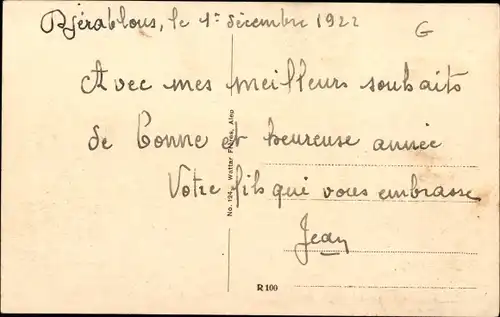 Djérablous, le 1er décembre 1922
G
Avec mes meilleurs souhaits
de bonne et heureuse année
Votre fils qui vous embrasse
Jean
Wattar Frères, Alep
R 100